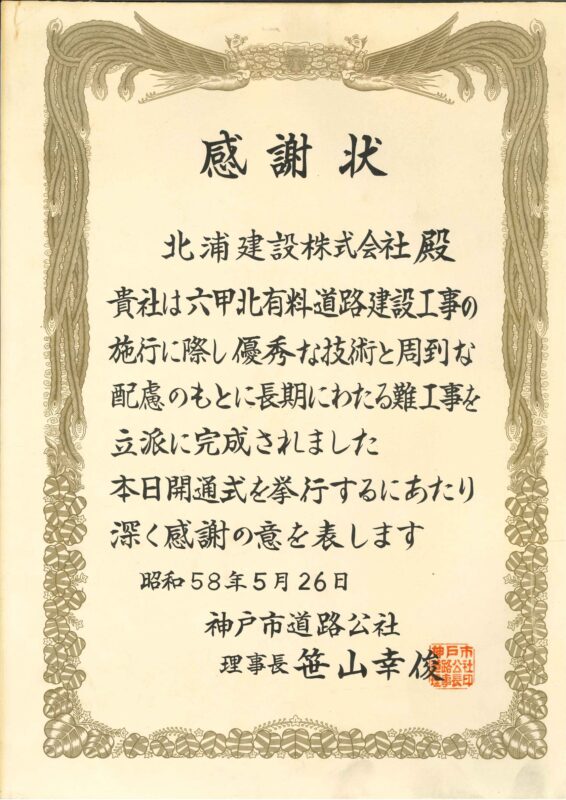 感謝状
北浦建設株式会社 殿
貴社は六甲北有料道路建設工事の
施行に際し優秀な技術と周到な
配慮のもとに長期にわたる難工事を
立派に完成されました
本日開通式を挙行するにあたり
深く感謝の意を表します
昭和58年5月26日
神戸市道路公社
理事長 笹山幸俊
神戸市
道路公社
理事長印